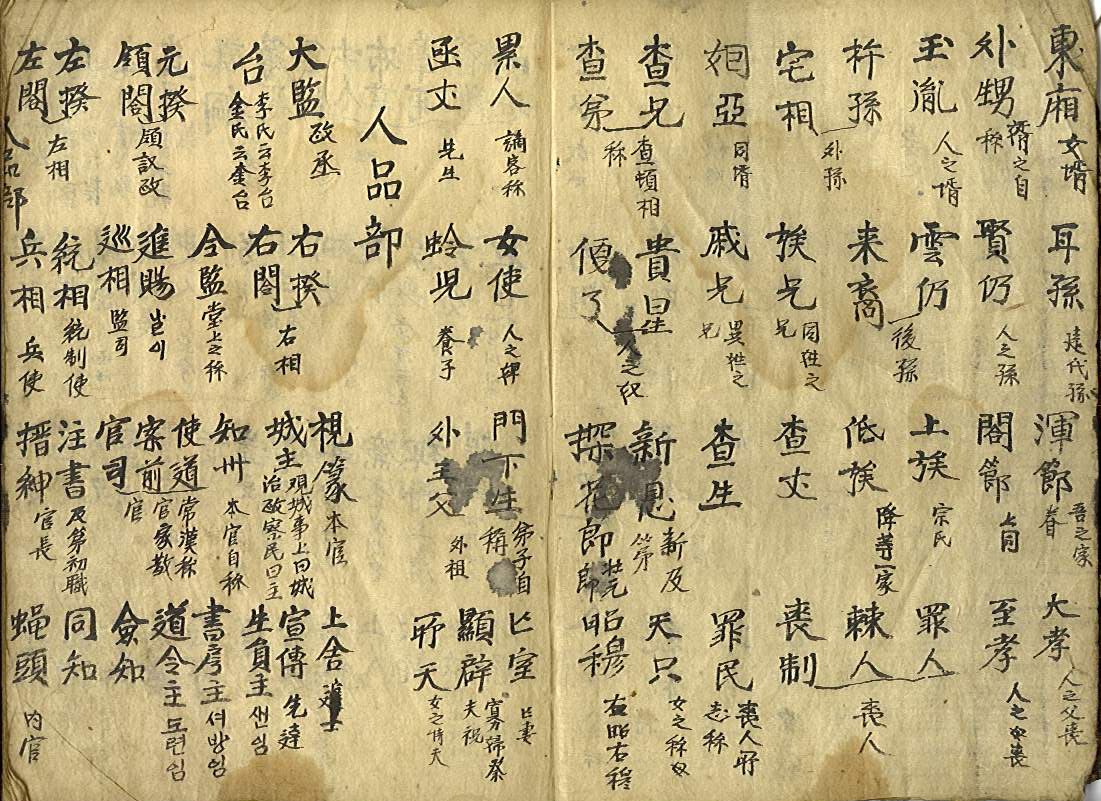 東廂 女婿 耳孫 遠代孫 渾節 吾之家眷 大孝 人之父喪
外甥 婿之自称 賢仍 人之孫 閤節 上同 至孝 人之母喪
玉胤 人之婿 雲仍 上族 宗氏 罪人
杵孫 来裔 後孫 低族 降等一家 棘人 喪人
宅相 外孫 族兄 同姓之兄 査丈 喪制
姻亞 同壻 戚兄 異姓之兄 査生 罪民 喪人所志称
査兄 査頓相称 貴星 新恩 新及第 天只 女之称母
査弟 人之奴 探花郎 壯元郎 昭穆 右昭右穆
累人 謫客称 女使 人之婢 門下生 弟子自稱 亡室 亡妻
函丈 先生 蛉児 養子 外王父 外祖 顯辟 寡婦祭夫祝
所天 女之侍夫
人品部
大監 政丞 右揆 視篆 本官 上舍 進士
台 李氏云李台 金氏云金台 右閤 右相 城主 观城事上曰城 治政察民曰主 宣傳 先達
元揆 令監 堂上之称 知州 本官自称 生員主 샌임
領閤 領議政 進賜 使道 常漢称 書房主 셔방임
左揆 巡相 監司 案前 官家教官 道令主 도련임
左閤 左相 統相 統制使 官司 僉知
兵相 兵使 注書 及第初職 同知
搢紳 官長 蝇頭 内官
人品部